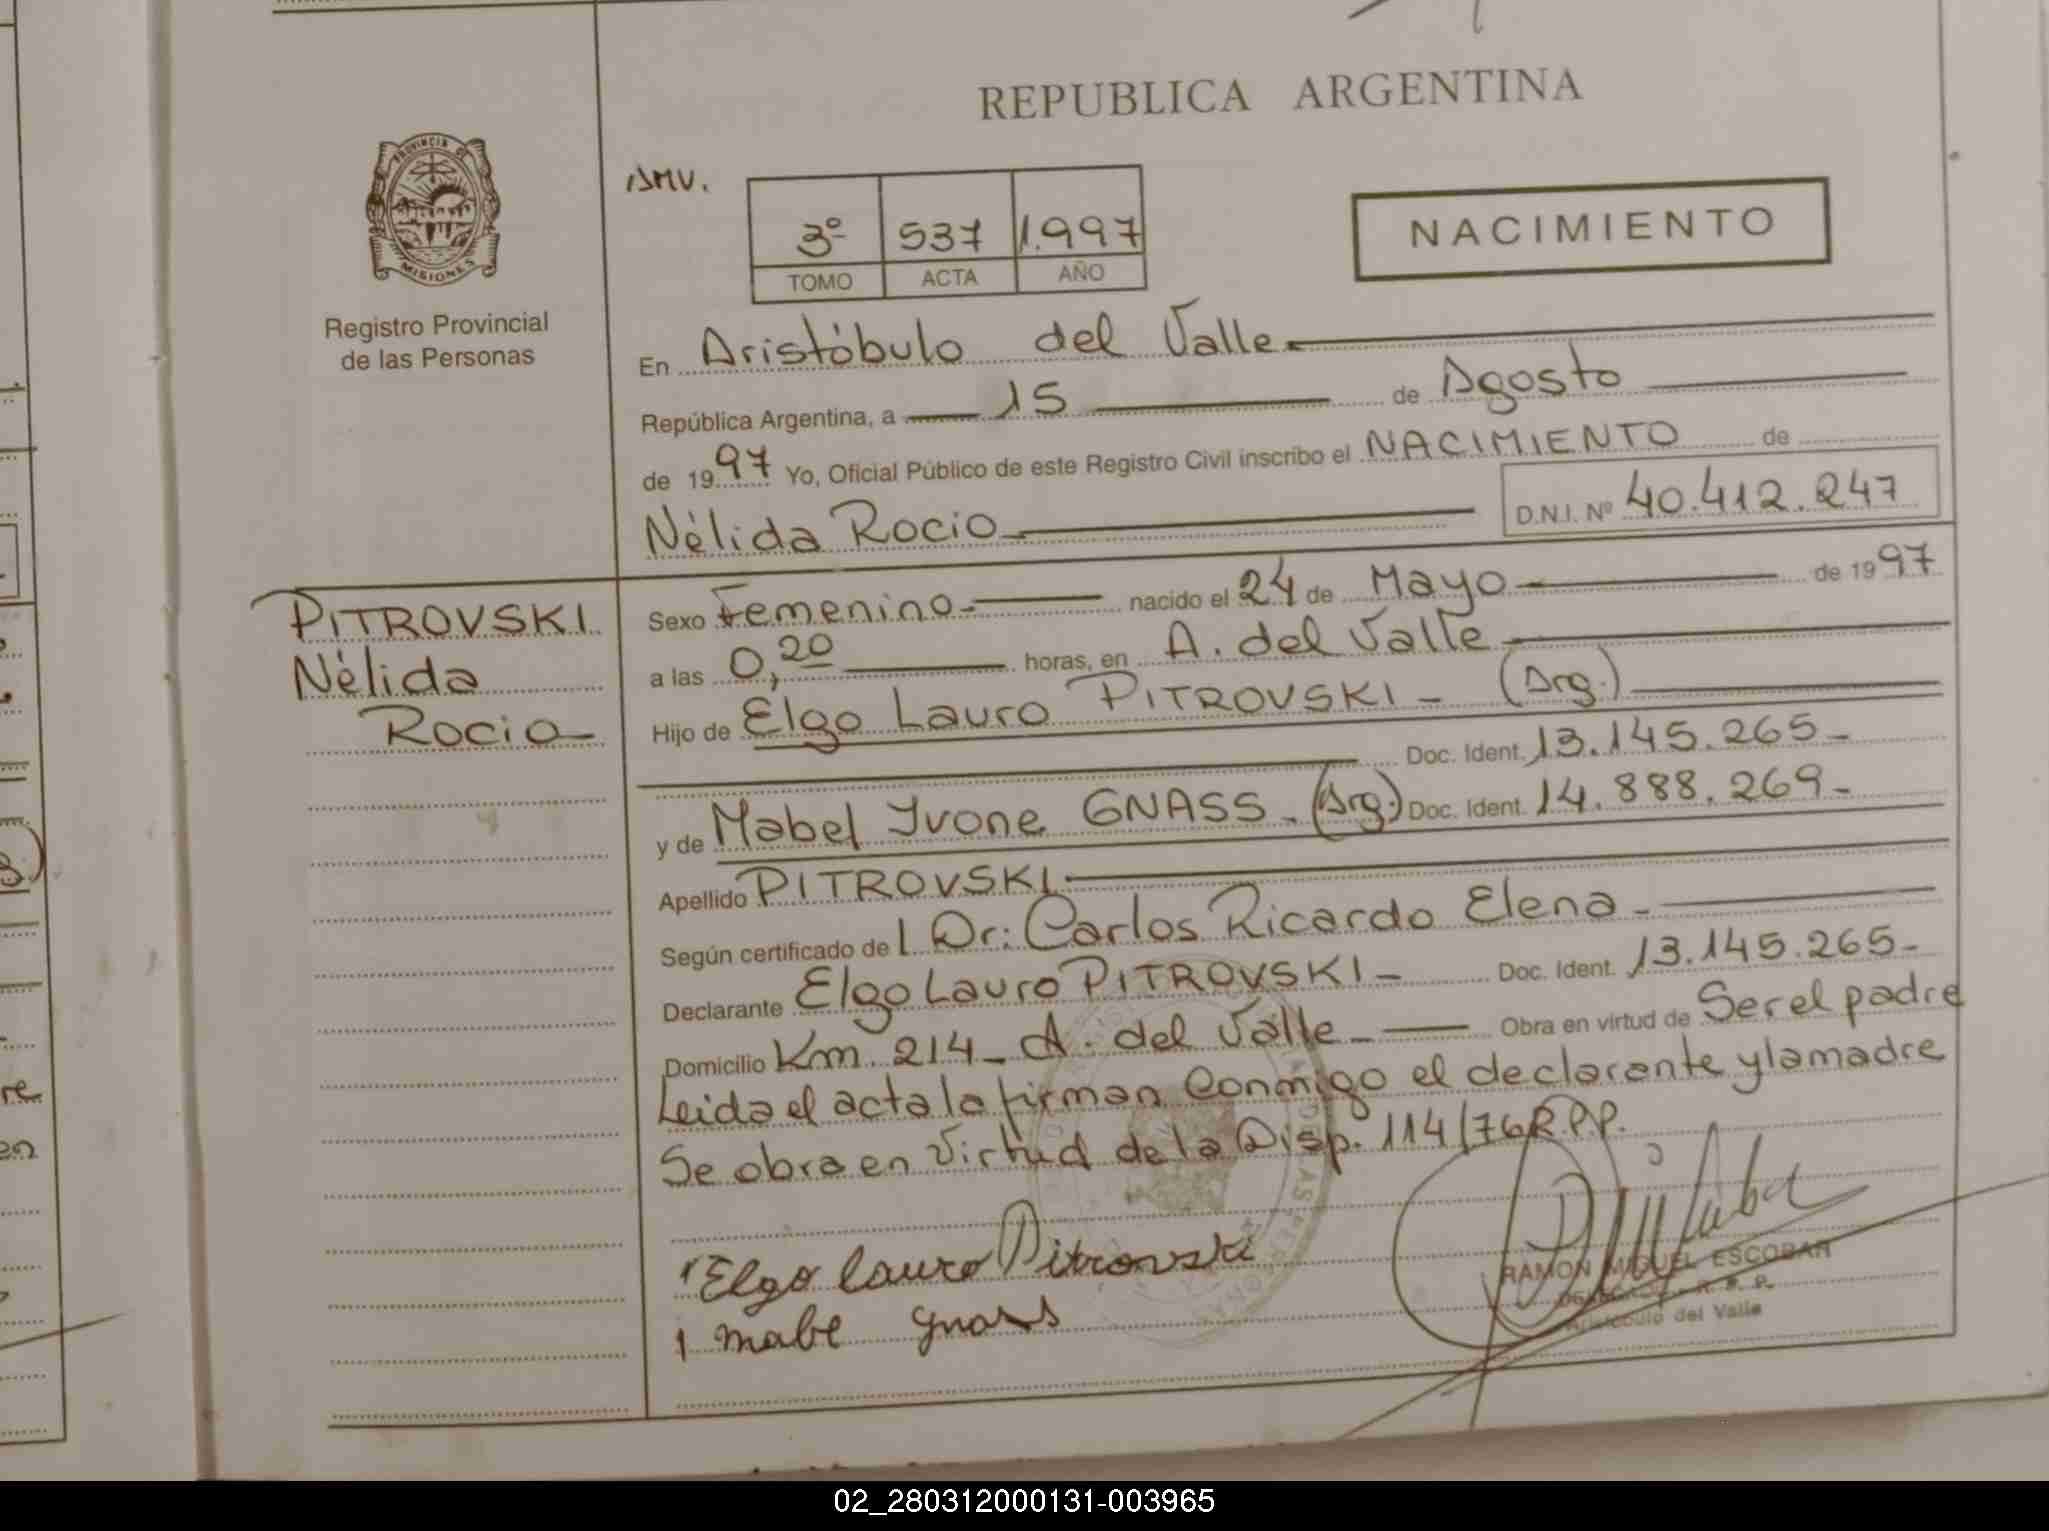 REPUBLICA ARGENTINA
PROVINCIA DE
MISIONES
Registro Provincial
de las Personas
AMV.
3º 537 1.997
TOMO ACTA AÑO
NACIMIENTO
En Aristóbulo del Valle.
República Argentina, a 15 de Agosto
de 1997 Yo, Oficial Público de este Registro Civil inscribo el NACIMIENTO de
Nélida Rocio D.N.I. Nº 40.412.247
PITROVSKI
Nélida
Rocio
Sexo Femenino.- nacido el 24 de Mayo de 1997
a las 0,20 horas, en A. del Valle
Hijo de Elgo Lauro PITROVSKI - (Arg.)
Doc. Ident. 13.145.265-
y de Mabel Yvone GNASS - (Arg.) Doc. Ident. 14.888.269-
Apellido PITROVSKI
Según certificado de Dr: Carlos Ricardo Elena -
Declarante Elgo Lauro PITROVSKI - Doc. Ident. 13.145.265-
Domicilio Km. 214 - A. del Valle - Obra en virtud de Ser el padre
Leida el acta la firman conmigo el declarante y la madre
Se obra en virtud de la Disp. 114/76 R.P.P.
Elgo Lauro Pitrovski
mabe gnass
RAMON MIGUEL ESCOBAR
DELEGADO - R. P. P.
Aristóbulo del Valle
02_280312000131-003965